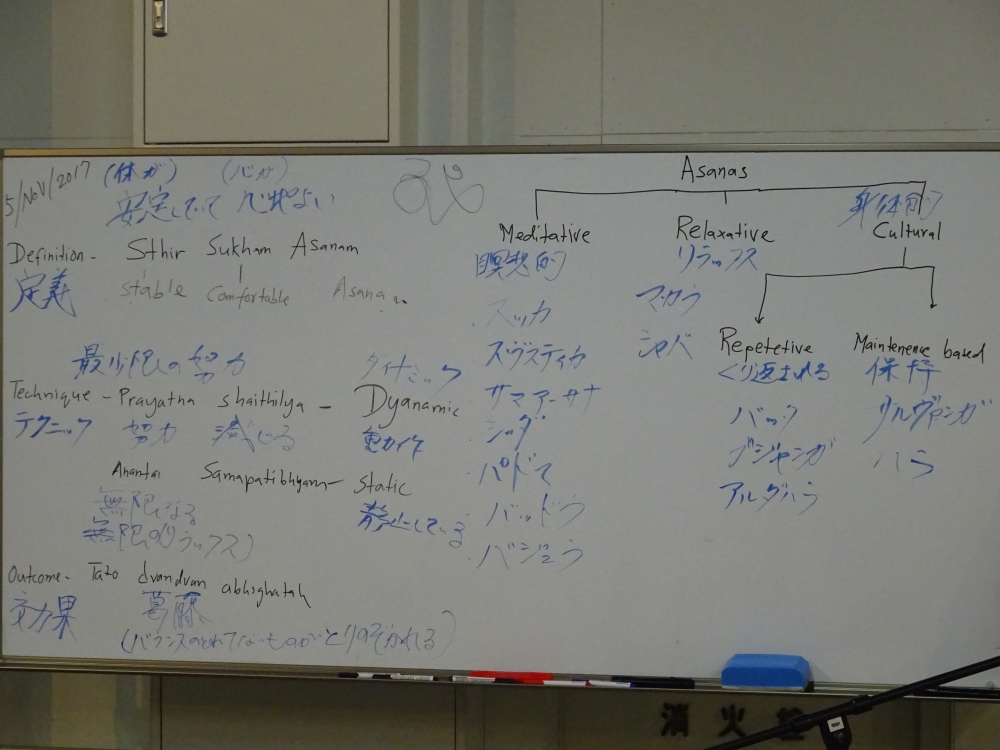 5/Nov/2017
(体が) (心が)
安定していて 心地よい
Definition - Sthir Sukham Asanam
定義 stable Comfortable Asana
最少限の努力
ダイナミック
Technique - Prayatna shaithilya - Dyanamic
テクニック 努力 減じる 動作
Ananta Samapatibhyam - Static
無限なる 静止している
無限のリラックス)
Outcome - Tato dvandvan abhighatah
効果 葛藤
(バランスのとれてないものがとりのぞかれる)
Asanas
Meditative
瞑想的
スッカ
スヴスティカ
サマアーサナ
シッダ
パドマ
バッドラ
バジュラ
Relaxative
リラックス
マカラ
シャバ
身体的
Cultural
Repetetive
くり返される
バック
ブジャンガ
アルダハラ
Maintenence based
保持
サルヴァンガ
ハラ
消火栓